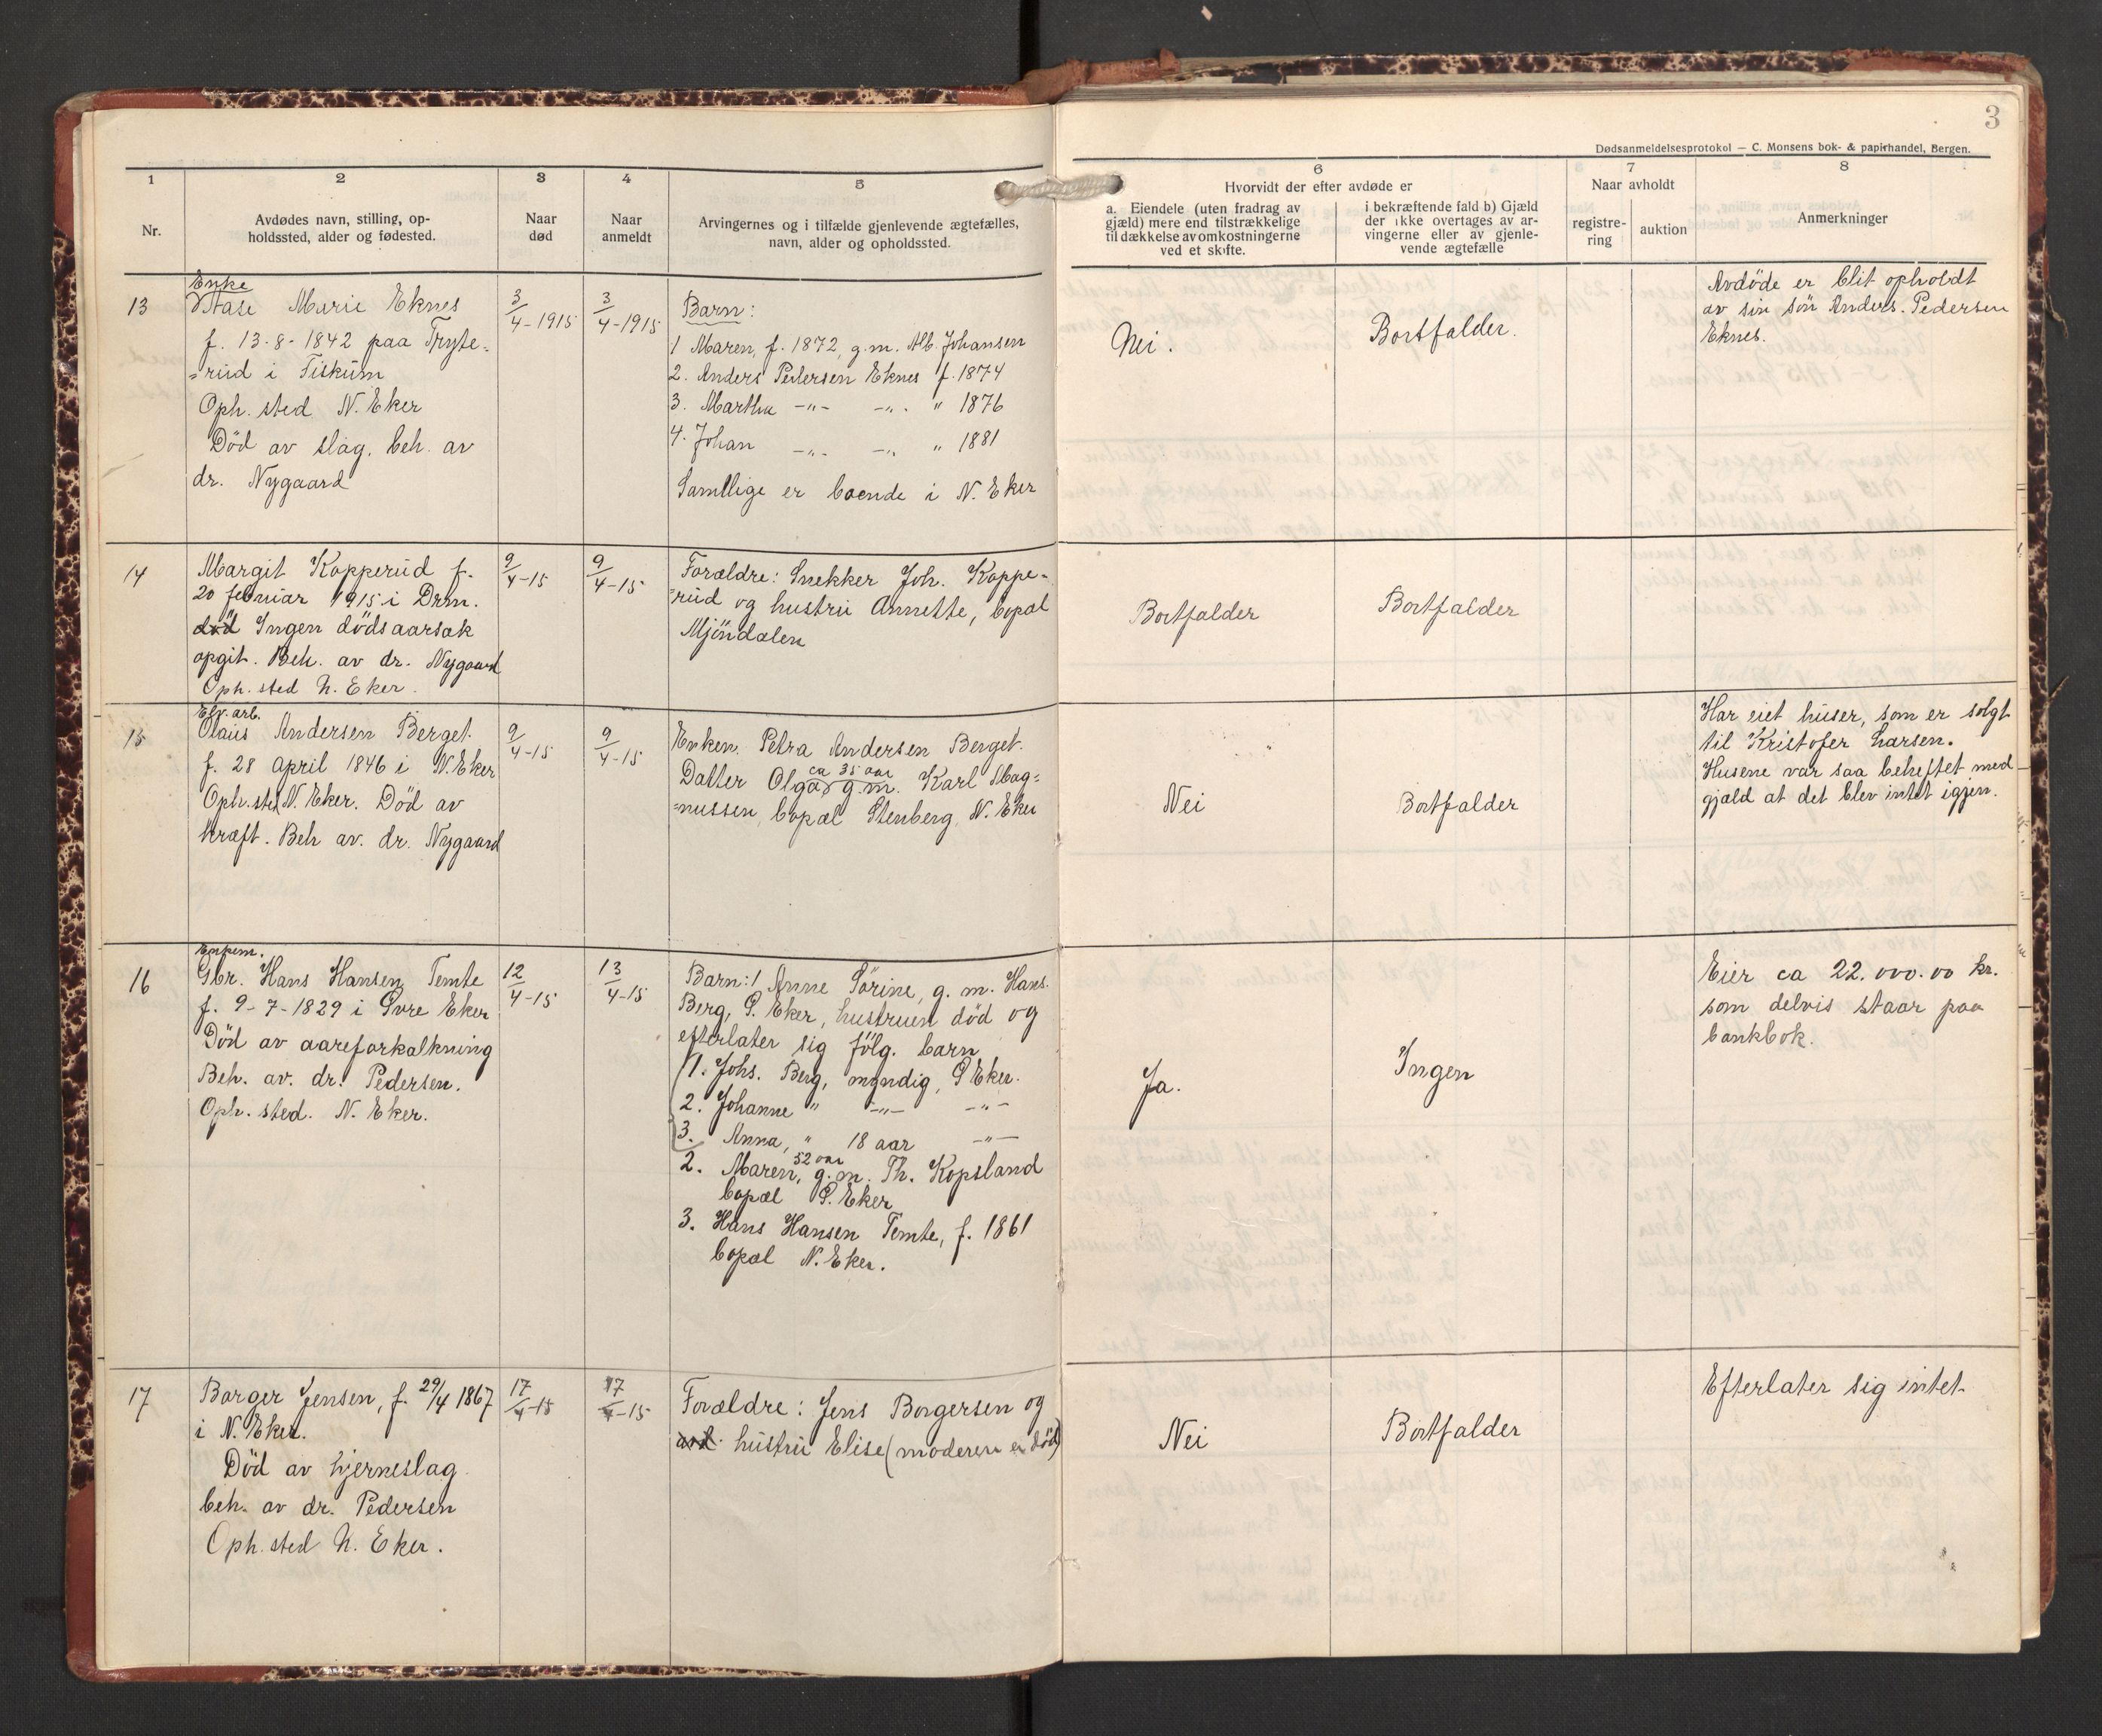 3
Dødsanmeldelsesprotokol — C. Monsens bok- & papirhandel, Bergen.
1
2
3
4
5
6
7
8
Nr.
Avdødes navn, stilling, op-
holdssted, alder og fødested.
Naar
død
Naar
anmeldt
Arvingernes og i tilfælde gjenlevende ægtefælles,
navn, alder og opholdssted.
Hvorvidt der efter avdøde er
a. Eiendele (uten fradrag av
gjæld) mere end tilstrækkelige
til dækkelse av omkostningerne
ved et skifte.
i bekræftende fald b) Gjæld
der ikke overtages av ar-
vingerne eller av gjenle-
vende ægtefælle
Naar avholdt
registre-
ring
auktion
Anmerkninger
13
Enke
Aase Marie Eknes
f. 13-8-1842 paa Tryte-
rud i Fiskum
Oph. sted N. Eker
Död av slag. beh. av
dr. Nygaard
3/4-1915
3/4-1915
Barn:
1 Maren, f. 1872, g.m. Alb. Johansen
2. Anders Pedersen Eknes f. 1874
3. Martha -"- -"- " 1876
4. Johan -"- -"- " 1881
Samtlige er boende i N. Eker
Nei.
Bortfalder.
Avdöde er blit opholdt
av sin sön Anders Pedersen
Eknes.
14
Margit Kopperud f.
20 februar 1915 i Drm.
död Ingen dödsaarsak
opgit. Beh. av dr. Nygaard
Oph. sted N. Eker.
9/4-15
9/4-15
Forældre: Snekker Joh. Koppe-
rud og hustru Annette, bopæl
Mjöndalen
Bortfalder
Bortfalder
15
Elv. arb.
Olaus Andersen Berget.
f. 28 April 1846 i N. Eker
Oph. sted N. Eker. Död av
kræft. Beh av. dr. Nygaard
9/4-15
9/4-15
Enken Petra Andersen Berget.
ca 35 aar
Datter Olga g.m. Karl Mag-
nussen, bopæl Stenberg, N. Eker
"
Nei
Bortfalder
Har eiet huser, som er solgt
til Kristofer Larsen.
Husene var saa beheftet med
gjæld at det blev intet igjen.
16
Enkem.
Gbr. Hans Hansen Temte
f. 9-7-1829 i Övre Eker
Död av aareforkalkning
Beh. av. dr. Pedersen.
Oph. sted. N. Eker.
12/4-15
13/4-15
Barn: 1 Anne Sörine, g. m. Hans.
Berg, Ö. Eker, hustruen död og
efterlater sig fölg. barn
1. Johs. Berg, myndig, Ö Eker.
2. Johanne " -"- -"-
3. Anna, " 18 aar -"-
52 aar
2. Maren, g. m. Th. Kopsland
bopæl Ö. Eker
3. Hans Hansen Temte, f. 1861
bopæl N. Eker.
Ja.
Ingen
Eier ca 22.000.00 kr.
som delvis staar paa
bankbok.
17
Borger Jensen, f. 29/4 1867
i N. Eker.
Död av hjerneslag
beh. av dr. Pedersen
Oph. sted N. Eker.
17/4-15
17/4-15
Forældre: Jens Borgersen og
hustru Elise (moderen er död)
Nei
Bortfalder
Efterlater sig intet